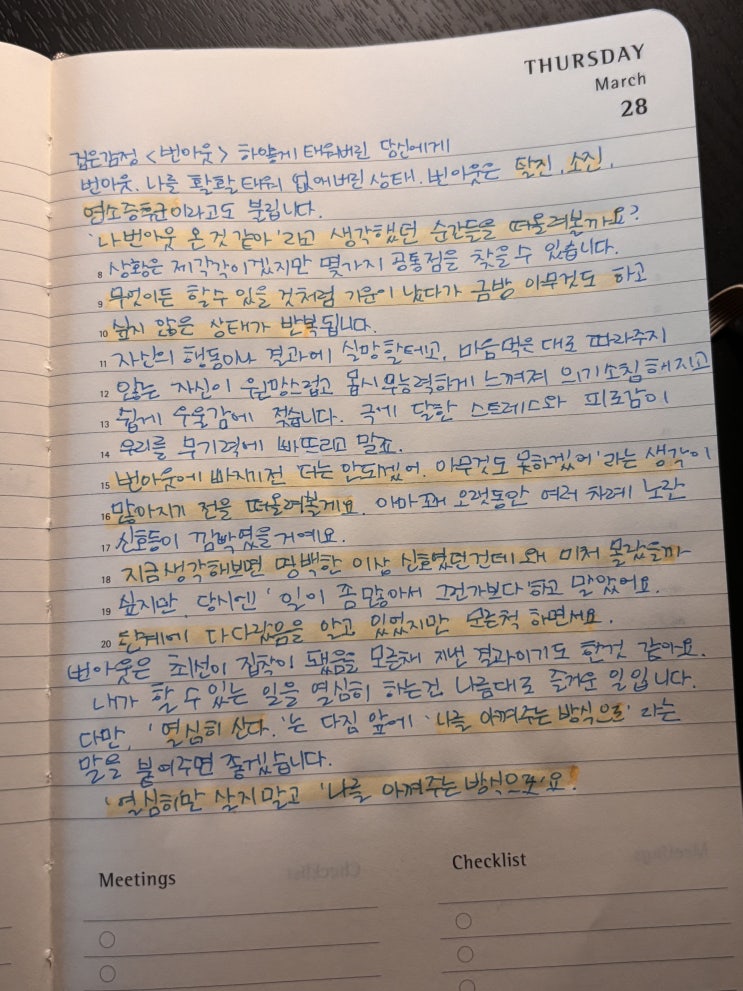 THURSDAY
March
28
검은감정 <번아웃> 하얗게 태워버린 당신에게
번아웃. 나를 활활 태워 없애버린 상태. 번아웃은 탈진, 소진,
연소증후군이라고도 불립니다.
'나 번아웃 온 것 같아'라고 생각했던 순간들을 떠올려볼까요?
8 상황은 제각각이겠지만 몇가지 공통점을 찾을 수 있습니다.
9 무엇이든 할 수 있을 것처럼 기운이 났다가 금방 아무것도 하고
10 싶지 않은 상태가 반복됩니다.
11 자신의 행동이나 결과에 실망할테고, 마음먹은 대로 따라주지
12 않는 자신이 원망스럽고 몹시 무능력하게 느껴져 의기소침해지고
13 쉽게 우울감에 젖습니다. 극에 달한 스트레스와 피로감이
14 우리를 무기력에 빠뜨리고 말죠.
15 번아웃에 빠지기 전 '더는 안되겠어. 아무것도 못하겠어'라는 생각이
16 많아지기 전을 떠올려볼게요. 아마 꽤 오랫동안 여러 차례 노란
17 신호등이 깜빡였을 거예요.
18 지금 생각해보면 명백한 이상 신호였던건데 왜 미처 몰랐을까
19 싶지만, 당시엔 '일이 좀 많아서 그런가보다' 하고 말았어요.
20 한계에 다다랐음을 알고 있었지만 모르는척 하면서요.
번아웃은 최선이 집착이 됐음을 모른채 지낸 결과이기도 한것 같아요.
내가 할 수 있는 일을 열심히 하는건 나름대로 즐거운 일입니다.
다만, '열심히 산다.'는 다짐 앞에 '나를 아껴주는 방식으로' 라는
말을 붙여주면 좋겠습니다.
'열심히만 살지말고 '나를 아껴주는 방식으로'요.'
Meetings
Checklist